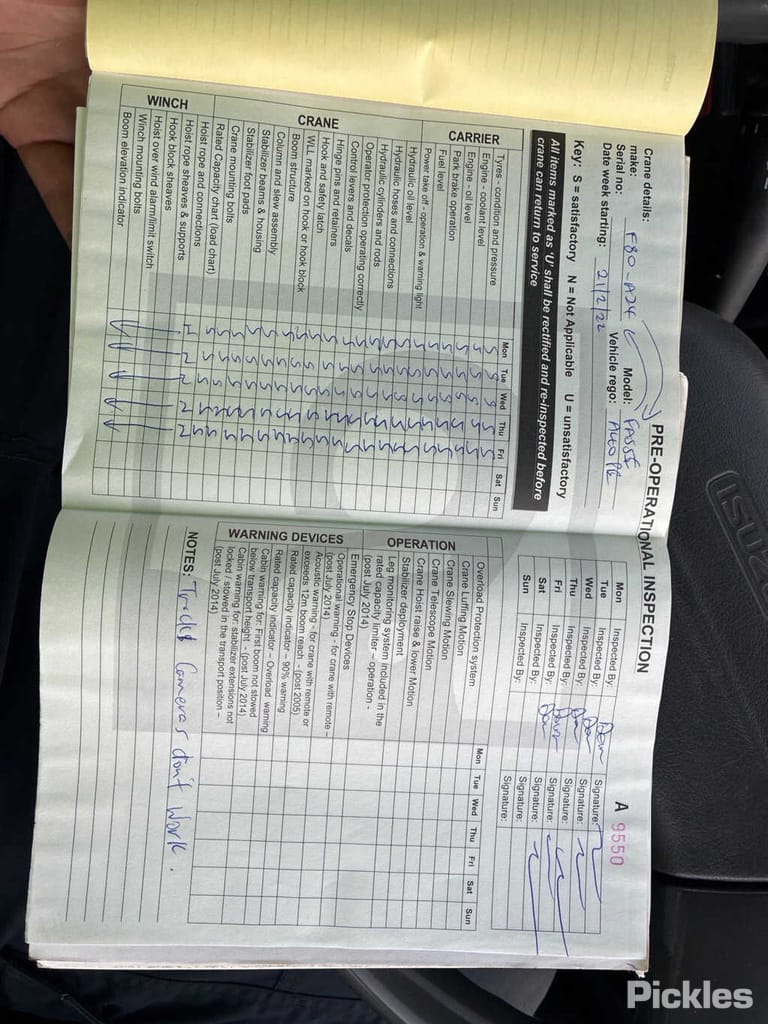 PRE-OPERATIONAL INSPECTION
A 9550
Crane details:
make: F80-A24 Model: F085F
Serial no: Vehicle rego:
Date week starting: 21/2/22
Key: S = satisfactory N = Not Applicable U = unsatisfactory
All items marked as 'U' shall be rectified and re-inspected before
crane can return to service
Mon Tue Wed Thu Fri Sat Sun
CARRIER
Tyres - condition and pressure S S S S S
Engine - coolant level S S S S S
Engine - oil level S S S S S
Park brake operation S S S S S
Fuel level S S S S S
Power take off - operation & warning light S S S S S
CRANE
Hydraulic oil level S S S S S
Hydraulic hoses and connections S S S S S
Hydraulic cylinders and rods S S S S S
Operator protection operating correctly S S S S S
Control levers and decals S S S S S
Hinge pins and retainers S S S S S
Hook and safety latch S S S S S
WLL marked on hook or hook block S S S S S
Boom structure S S S S S
Column and slew assembly S S S S S
Stabilizer beams & housing S S S S S
Stabilizer foot pads S S S S S
Crane mounting bolts S S S S S
Rated Capacity chart (load chart) S S S S S
WINCH
Hoist rope and connections N N N N N
Hoist rope sheaves & supports
Hook block sheaves
Hoist over wind alarm/limit switch
Winch mounting bolts
Boom elevation indicator
Mon Inspected By: Dan Signature:
Tue Inspected By: Dan Signature:
Wed Inspected By: Dan Signature:
Thu Inspected By: Dan Signature:
Fri Inspected By: Dan Signature:
Sat Inspected By: Signature:
Sun Inspected By: Signature:
Mon Tue Wed Thu Fri Sat Sun
OPERATION
Overload Protection system
Crane Luffing Motion
Crane Slewing Motion
Crane Telescope Motion
Crane Hoist raise & lower Motion
Stabilizer deployment
Leg monitoring system included in the
rated capacity limiter – operation -
(post July 2014)
WARNING DEVICES
Emergency Stop Devices
Operational warning - for crane with remote –
(post July 2014)
Acoustic warning - for crane with remote or
exceeds 12m boom reach - (post 2005)
Rated capacity indicator – 90% warning
Rated capacity indicator – Overload warning
Cabin warning for: First boom not stowed
below transport height - (post July 2014)
Cabin warning for: stabilizer extensions not
locked / stowed in the transport position –
(post July 2014)
NOTES: Trucks Cameras don't work.
ISUZU
Pickles